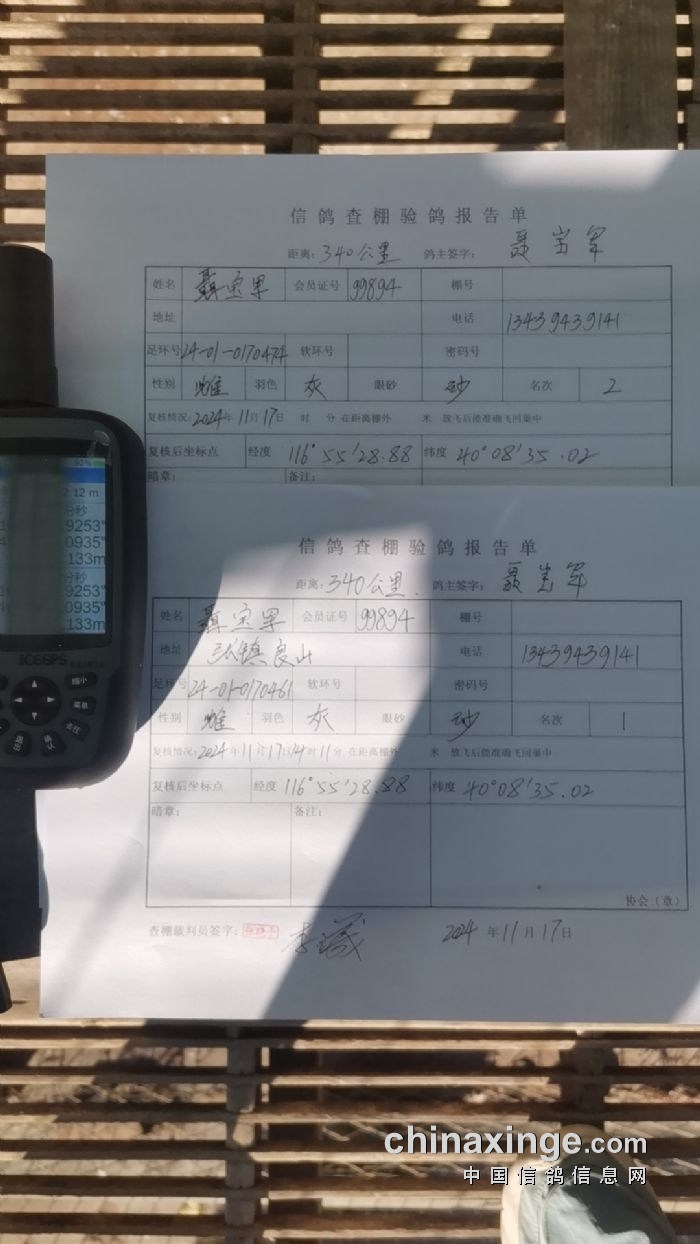 信鸽查棚验鸽报告单
距离: 340公里 鸽主签字: 聂宝军
姓名 聂宝军 会员证号 99894 棚号
地址 电话 13439439141
足环号 24-01-0170474 软环号 密码号
性别 雌 羽色 灰 眼砂 砂 名次 2
复核情况: 2024年11月17日 时 分 在距离棚外 米 放飞后能准确飞回巢中
复核后坐标点 经度 116°55'28.88 纬度 40°08'35.02
暗章: 备注:
信鸽查棚验鸽报告单
距离: 340公里. 鸽主签字: 聂宝军
姓名 聂宝军 会员证号 99894 棚号
地址 镇良山 电话 13439439141
足环号 24-01-0170461 软环号 密码号
性别 雌 羽色 灰 眼砂 砂 名次 1
复核情况: 2024年11月17日14时11分 在距离棚外 米 放飞后能准确飞回巢中
复核后坐标点 经度 116°55'28.88 纬度 40°08'35.02
暗章: 备注:
协会（章）
查棚裁判员签字: 2024年11月17日
91%
2.12 m
分秒
9253"
0935"
133m
分秒
9253"
0935"
133m
缩小
菜单
确认
chinaxinge.com
中国信鸽信息网